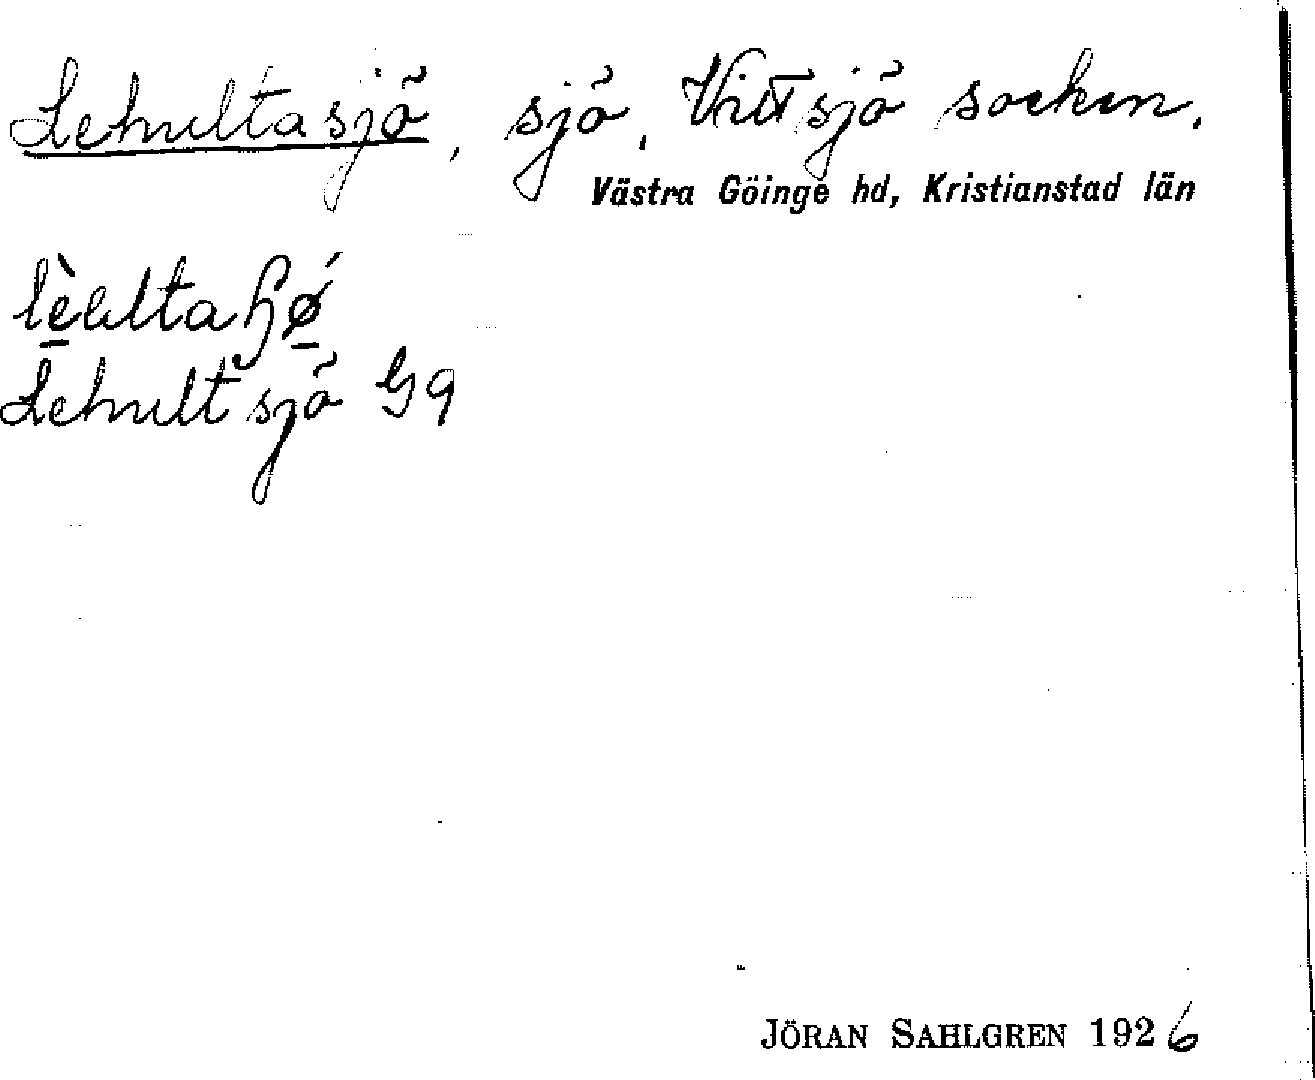 Lehultasjö, sjö, Vittsjö socken.
Västra Göinge hd, Kristianstad län
Lehultsjö G9
JÖRAN SAHLGREN 1926